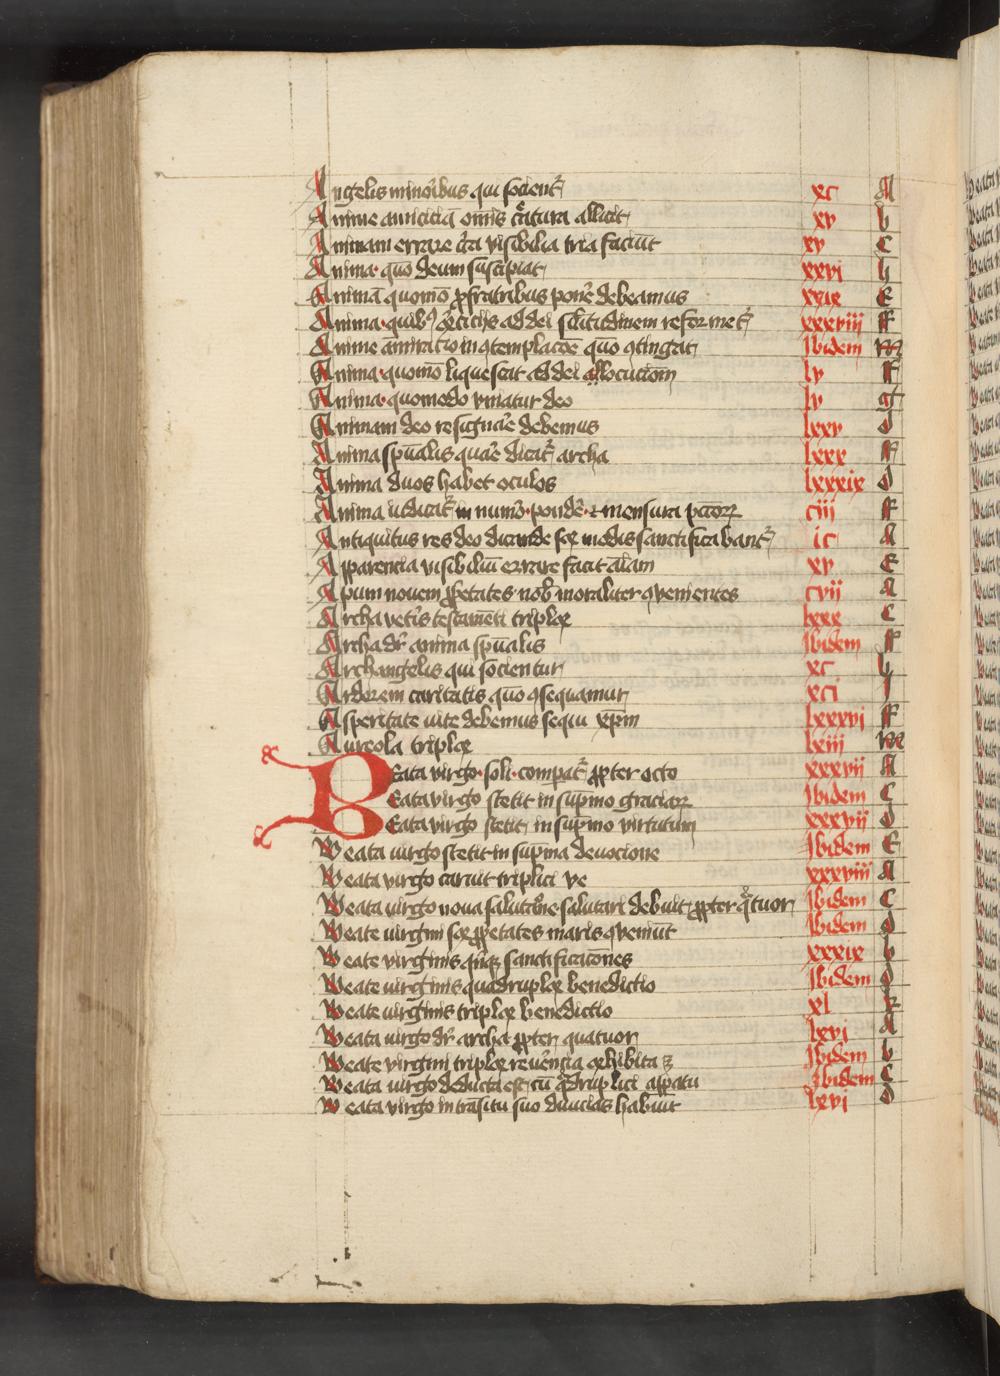 Angelis minoribus qui sociēt᷑ xc A
Anime amiciciā oīnis c̄atura allicit xv b
Animam errare c̄ca visibilia tria faciūt xv C
Anima quō deum suscipiat xxvi h
Animā quomō ꝓ fratribus pone᷑ debeamus xxix E
Anima quibꝰ ad dei silitudinem reformet᷑ xxxviii F
Anime āmiratio in ꝯtemplacōe quō ꝯtingat Ibidem M
Anima quomō liquescat ad dei allocucioīn lv F
Anima quomodo vniatur deo lv g
Animam deo resignare debemus lxxv d
Anima spūalis quare dicat᷑ archa lxxx F
Anima duos habet oculos lxxxix d
Anima iudicat᷑ in numēo ponde᷑ ⁊ mensura pctōrꝝ ciii F
Antiquitus res deo dicande sex modis sanctificabant᷑ ic A
Apparencia visibiliū errare facit aīam xv E
Apum nouem ꝓprietates nob moraliter ꝯuenientes cvii A
Archa veteris testamēti triplex lxxx C
Archa dr̄ anima spūalis Ibidem F
Archangelis qui socientur xc b
Ardorem caritatis quō ꝯsequamur xci I
Asperitate uite debemus sequi xp̄m lxxxvi F
Aureola triplex lxiii M
Beata virgo soli compat᷑ ꝓpter octo xxxvii A
Beata virgo stetit in sup̄mo graciarꝝ Ibidem C
Beata virgo stetit in sup̄mo virtutum xxxvii d
Beata uirgo stetit in sup̄ma deuocione Ibidem E
Beata virgo caruit triplici ve xxxviii A
Beata virgo noua salutatōne salutari debuit ꝓpter q̄tuor Ibidem C
Beate uirgini sex ꝓprietates maris ꝯueniūt Ibidem d
Beate virginis quinqꝫ sanctificatōnes xxxix b
Beate uirginis quadruplex benedictio Ibidem d
Beate uirginis triplex benedictio xl
Beata uirgo dr̄ archa ꝓpter quatuor lxvi A
Beate virgini triplex reuēncia exhibita ꝫ Ibidem b
Beata uirgo deducta est cū q̄druplici appatu Ibidem C
Beata virgo in trāsitu suo diuicias habuit lxvi d